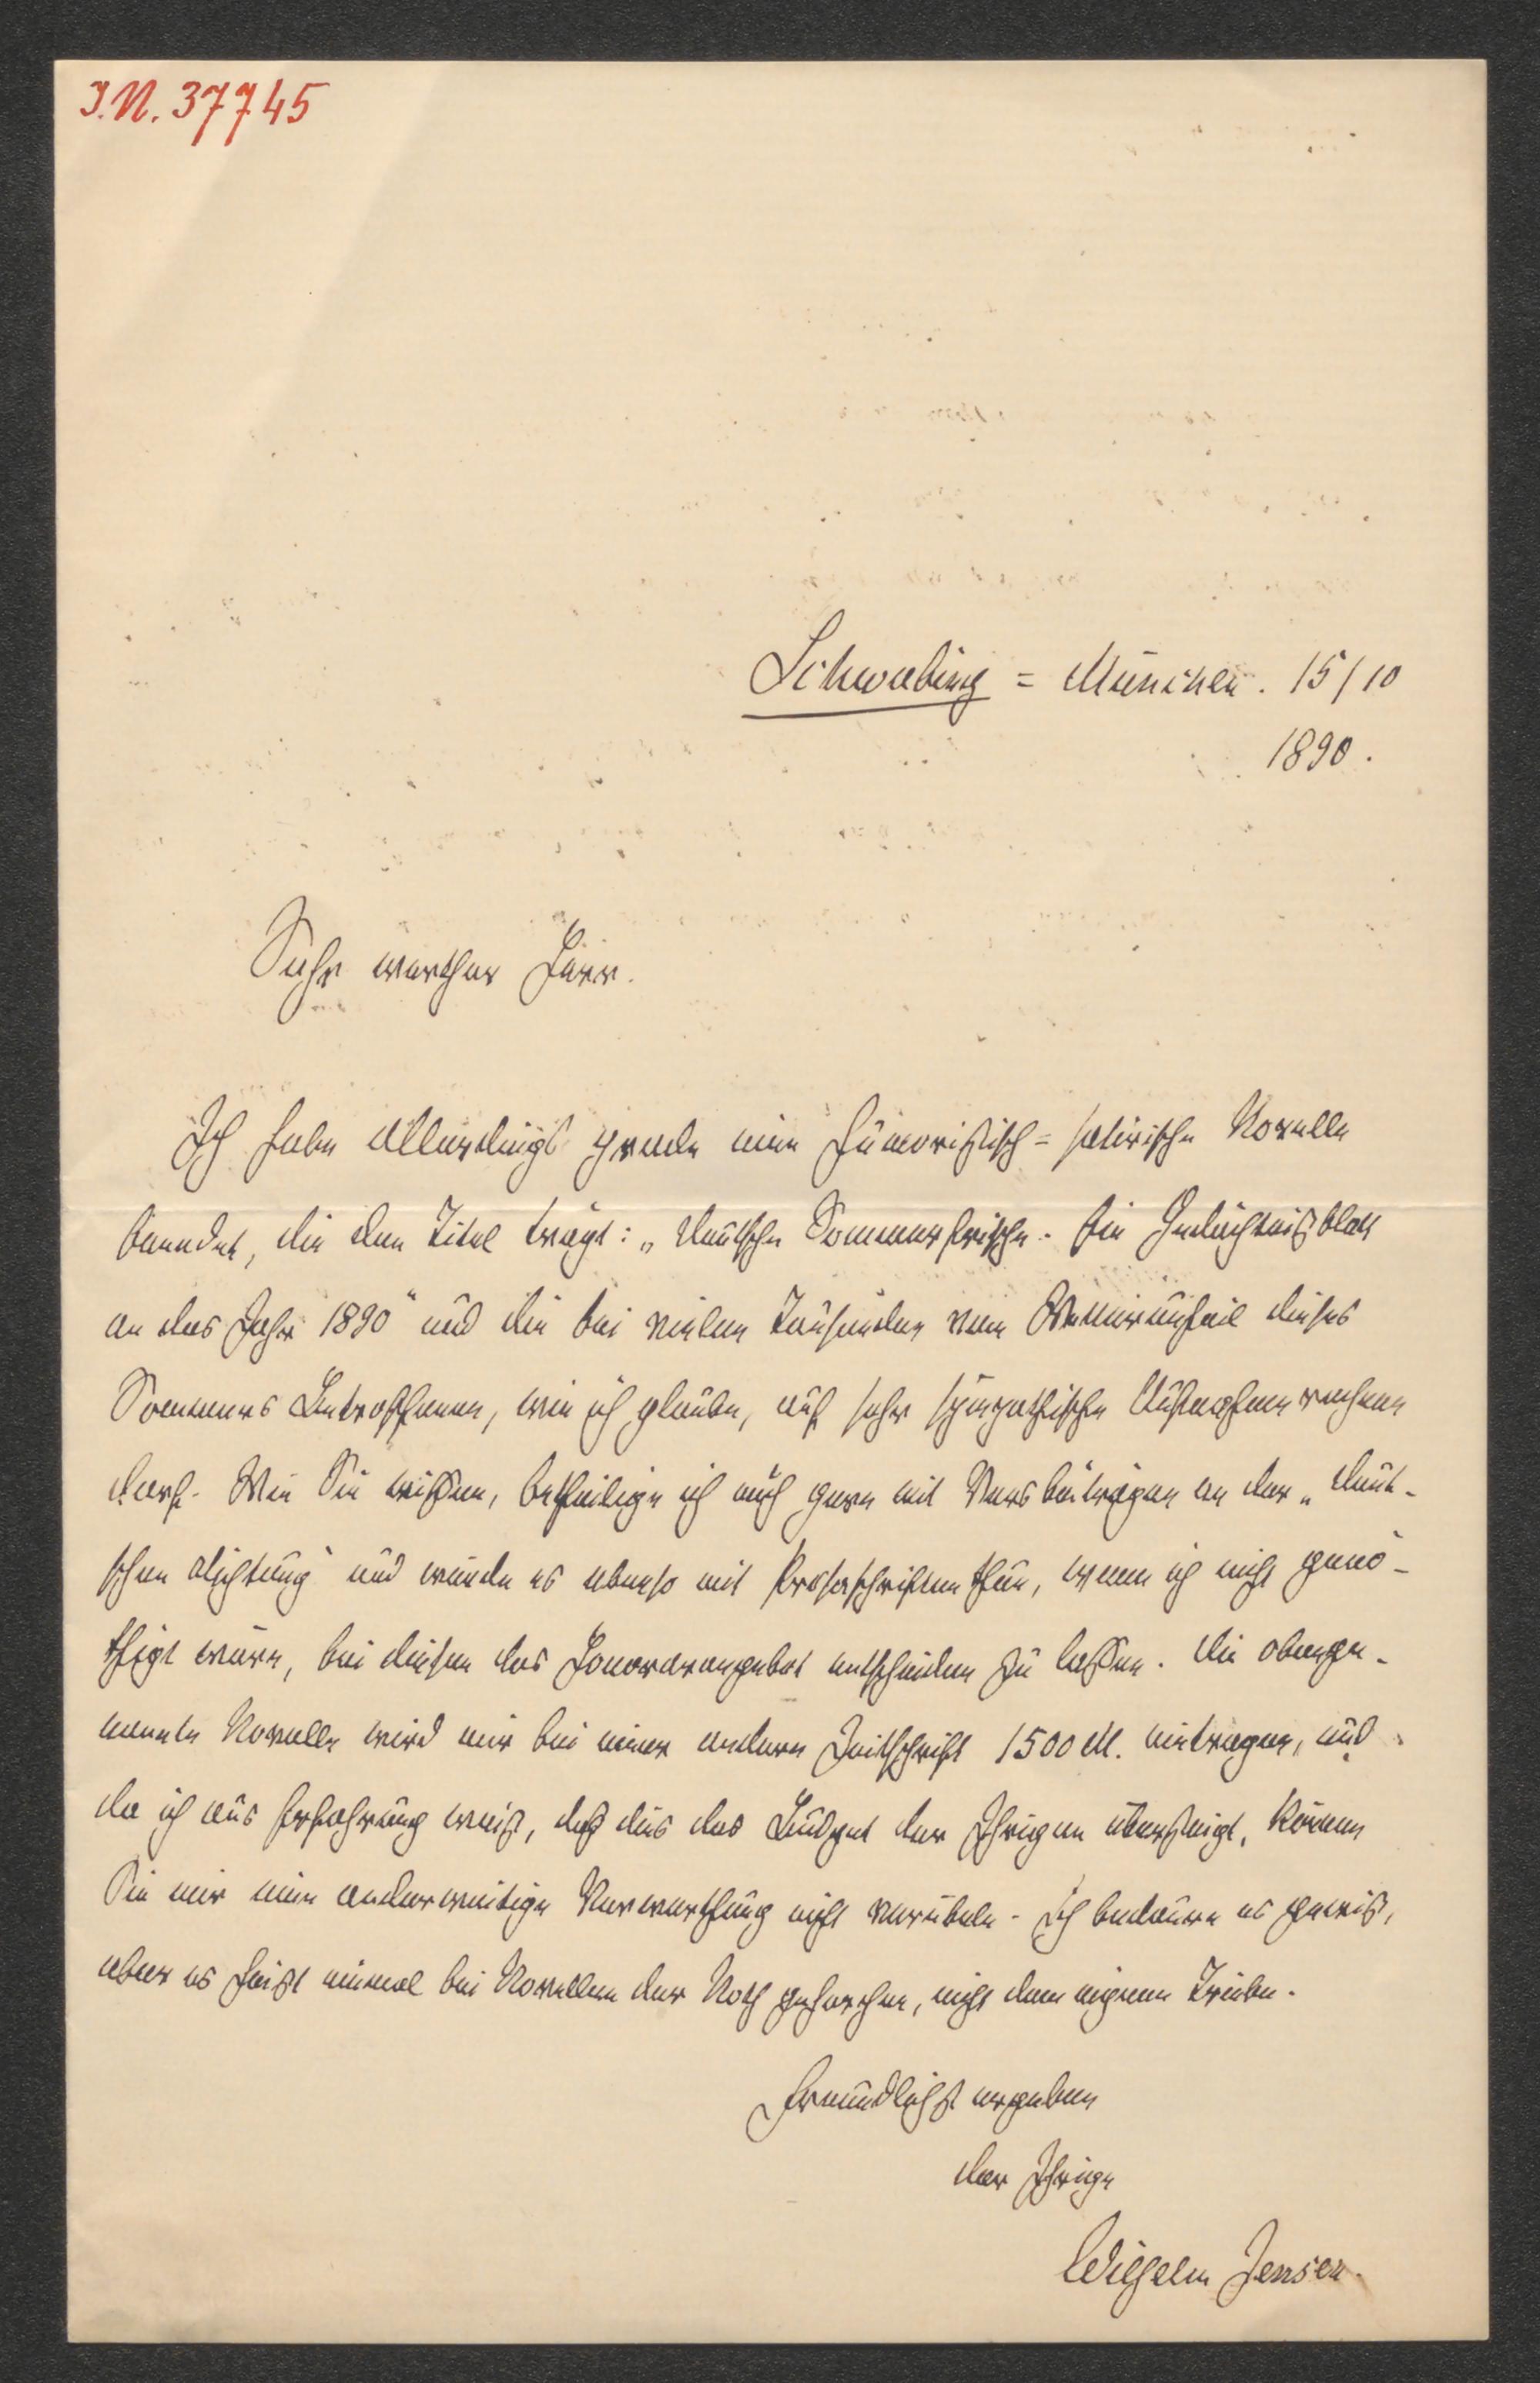 I.N. 37745
Schwabing = München. 15/10
1890.
Sehr werther Herr.
Ich habe allerdings grade eine humoristisch = satirische Novelle
beendet, die den Titel trägt: „Deutsche Sommerfrische. Ein Gedächtnißblatt
an das Jahr 1890" und die bei vielen Tausenden vom Wetterunheil dieses
Sommers Betroffenen, wie ich glaube, auf sehr sympathische Aufnahme rechnen
darf. Wie Sie wissen, betheilige ich mich gern mit Versbeiträgen an der „Deut-
schen Dichtung" und würde es ebenso mit Prosaschriften thun, wenn ich nicht genö-
thigt wäre, bei diesen das Honorarangebot entscheiden zu lassen. Die obenge-
nannte Novelle wird mir bei einer andern Zeitschrift 1500 M. eintragen, und
da ich aus Erfahrung weiß, daß dies das Budget der Ihrigen übersteigt, können
Sie mir eine anderweitige Verwerthung nicht verübeln. Ich bedaure es gewiß,
aber es heißt einmal bei Novellen der Noth gehorchen, nicht dem eignen Triebe.
Freundlichst ergeben
der Ihrige
Wilhelm Jensen.